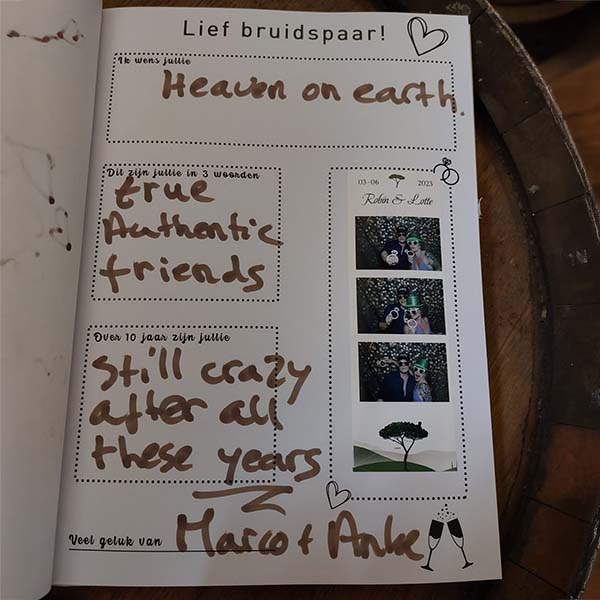 Lief bruidspaar!
Ik wens jullie
Heaven on earth.
Dit zijn jullie in 3 woorden
true
Authentic
friends
03-06 2023
Robin & Lotte
Over 10 jaar zijn jullie
Still crazy
after all
these years
Veel geluk van Marco + Anke